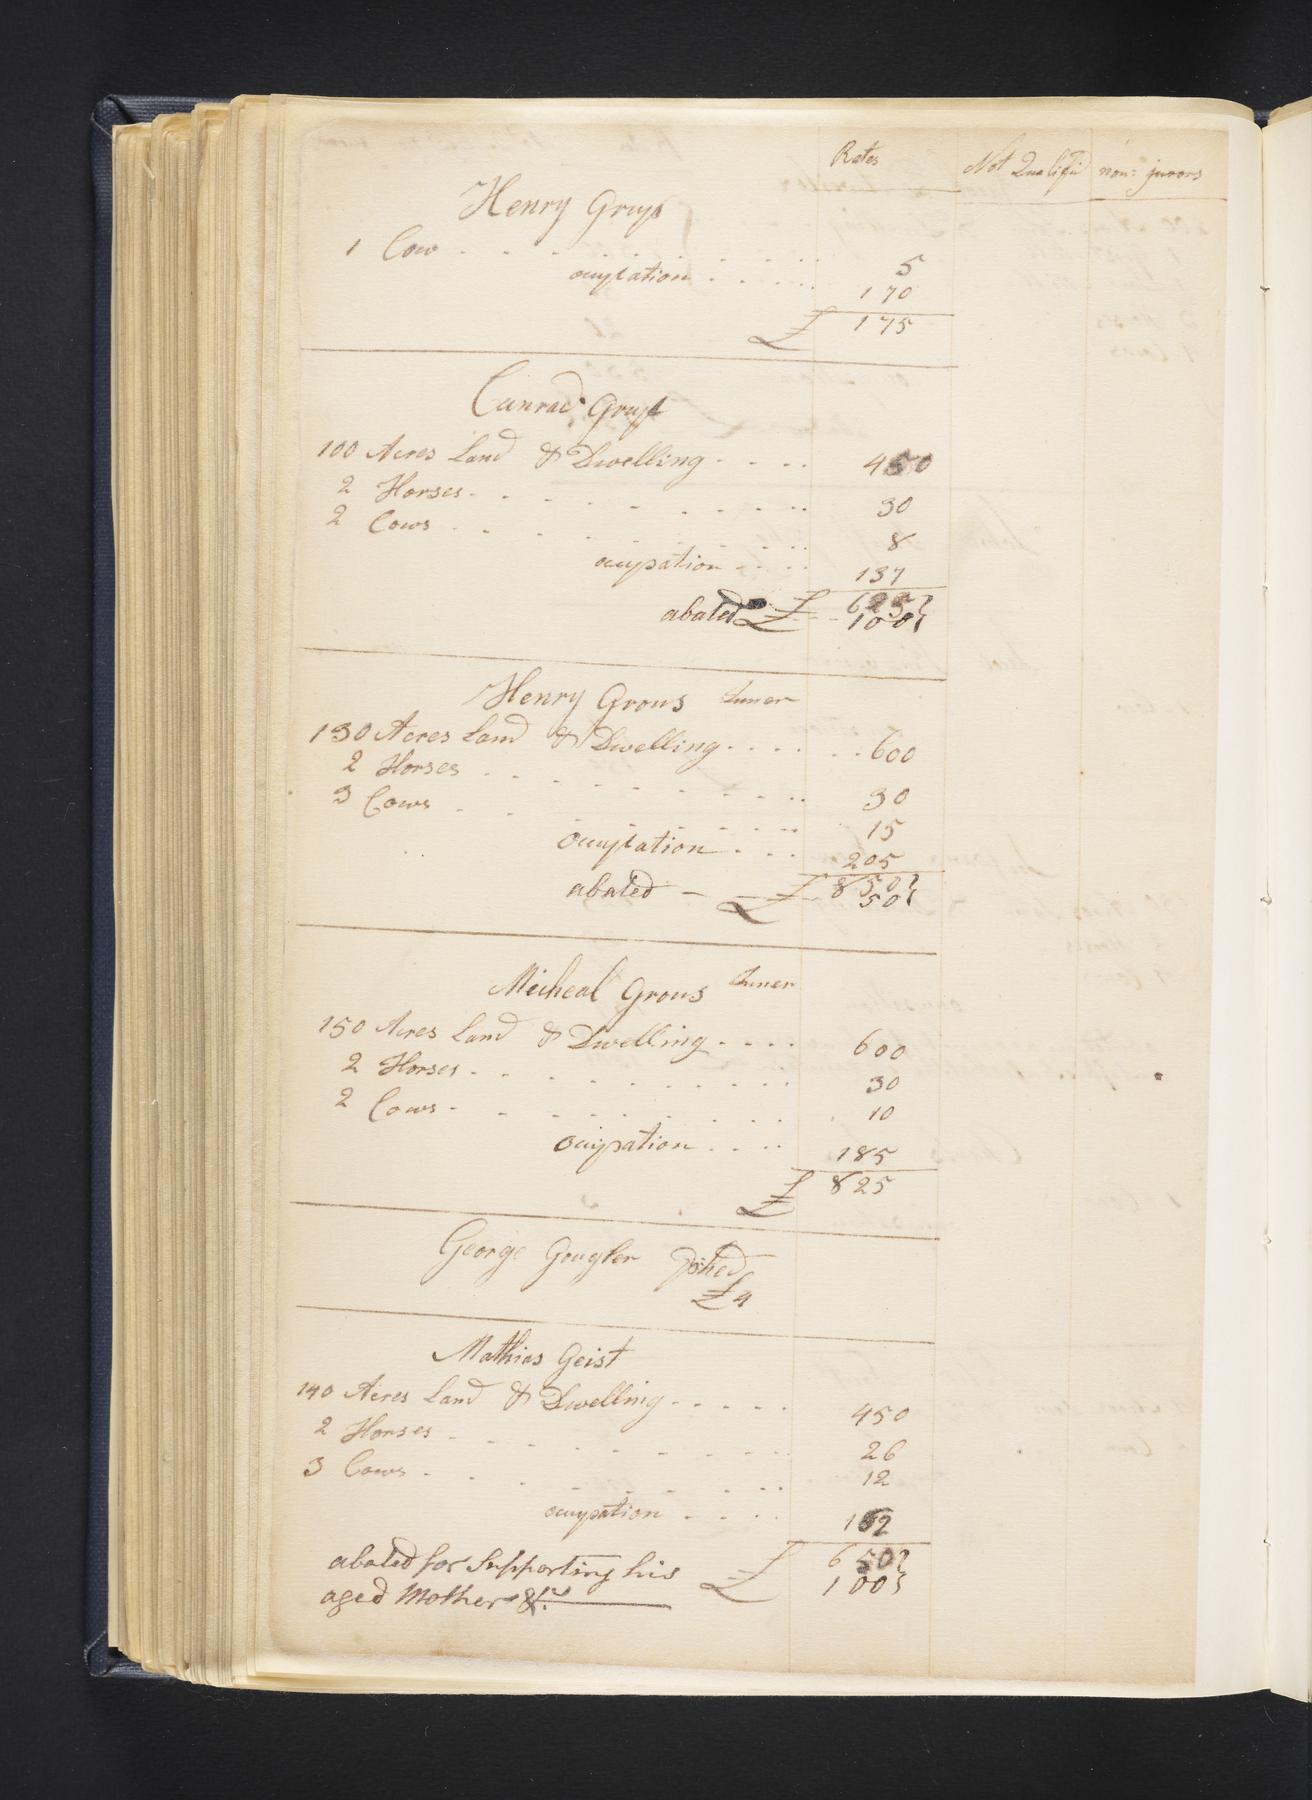 Rates Not Qualifid non: jurors
Henry
1 Cow . . . . . . . . 5
ocupation . . . . . 170
£ 175
Conrad
100 Acres Land & Dwelling . . . . 450
2 Horses . . . . . . . . 30
2 Cows . . . . . . . . 8
ocupation . . . . 137
£ 625
abated 100
Henry Grous Juner
130 Acres Land & Dwelling . . . . . . 600
2 Horses . . . . . . . . 30
3 Cows . . . . . . . . 15
Ocupation . . . 205
£ 850
abated — 50
Micheal Grous Juner
150 Acres Land & Dwelling . . . . 600
2 Horses . . . . . . . . . 30
2 Cows . . . . . . . . 10
Ocupation . . . . 185
£ 825
George Gougler
£
Mathias Geist
140 Acres Land & Dwelling . . . . . 450
2 Horses . . . . . . . . 26
3 Cows . . . . . . . . 12
ocupation . . . . 162
£ 650
abated for Supporting his 100
aged Mother &c